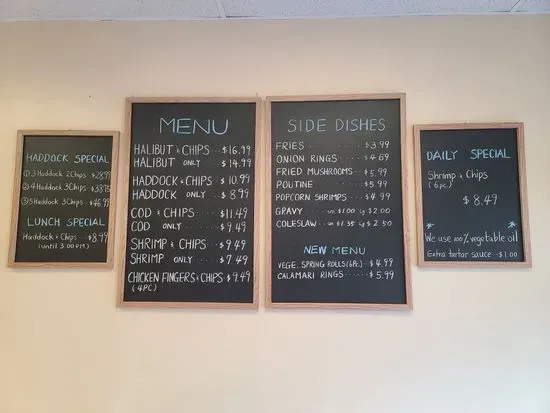 HADDOCK SPECIAL
① 3 Haddock 2 Chips $28.99
② 4 Haddock 3 Chips $38.75
③ 5 Haddock 3 Chips $46.99
LUNCH SPECIAL
Haddock & Chips $8.99
(until 3:00 PM)
MENU
HALIBUT & CHIPS $16.99
HALIBUT ONLY $14.99
HADDOCK & CHIPS $10.99
HADDOCK ONLY $8.99
COD & CHIPS $11.49
COD ONLY $9.49
SHRIMP & CHIPS $9.49
SHRIMP ONLY $7.49
CHICKEN FINGERS & CHIPS $9.49
(4PC)
SIDE DISHES
FRIES $3.99
ONION RINGS $4.69
FRIED MUSHROOMS $5.99
POUTINE $5.99
POPCORN SHRIMPS $4.99
GRAVY $1.00 $2.00
COLESLAW $1.35 $2.50
NEW MENU
VEGE. SPRING ROLLS (6PC) $4.99
CALAMARI RINGS $5.99
DAILY SPECIAL
Shrimp & Chips
(6 pc.)
$8.49
We use 100% vegetable oil
Extra tartar sauce $1.00